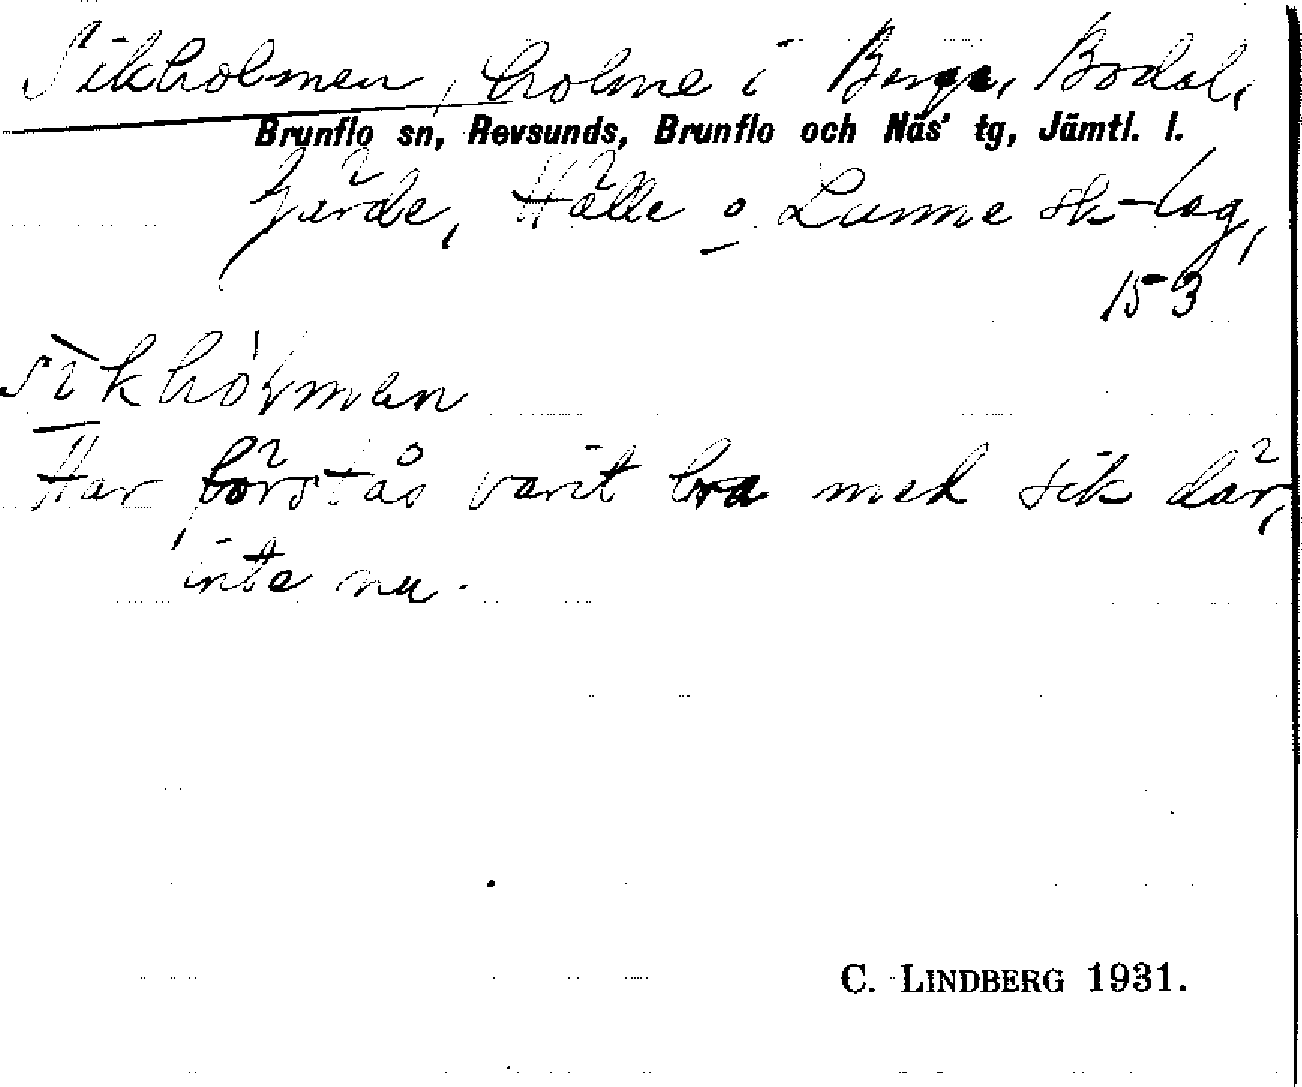 Sikholmen, holme i Berge, Bodal,
Brunflo sn, Revsunds, Brunflo och Näs' tg, Jämtl. l.
Gärde, Hälle o Lunne sk-lag,
153
sikhólmen
Har förstås varit bra med sik där,
inte nu.
C. LINDBERG 1931.